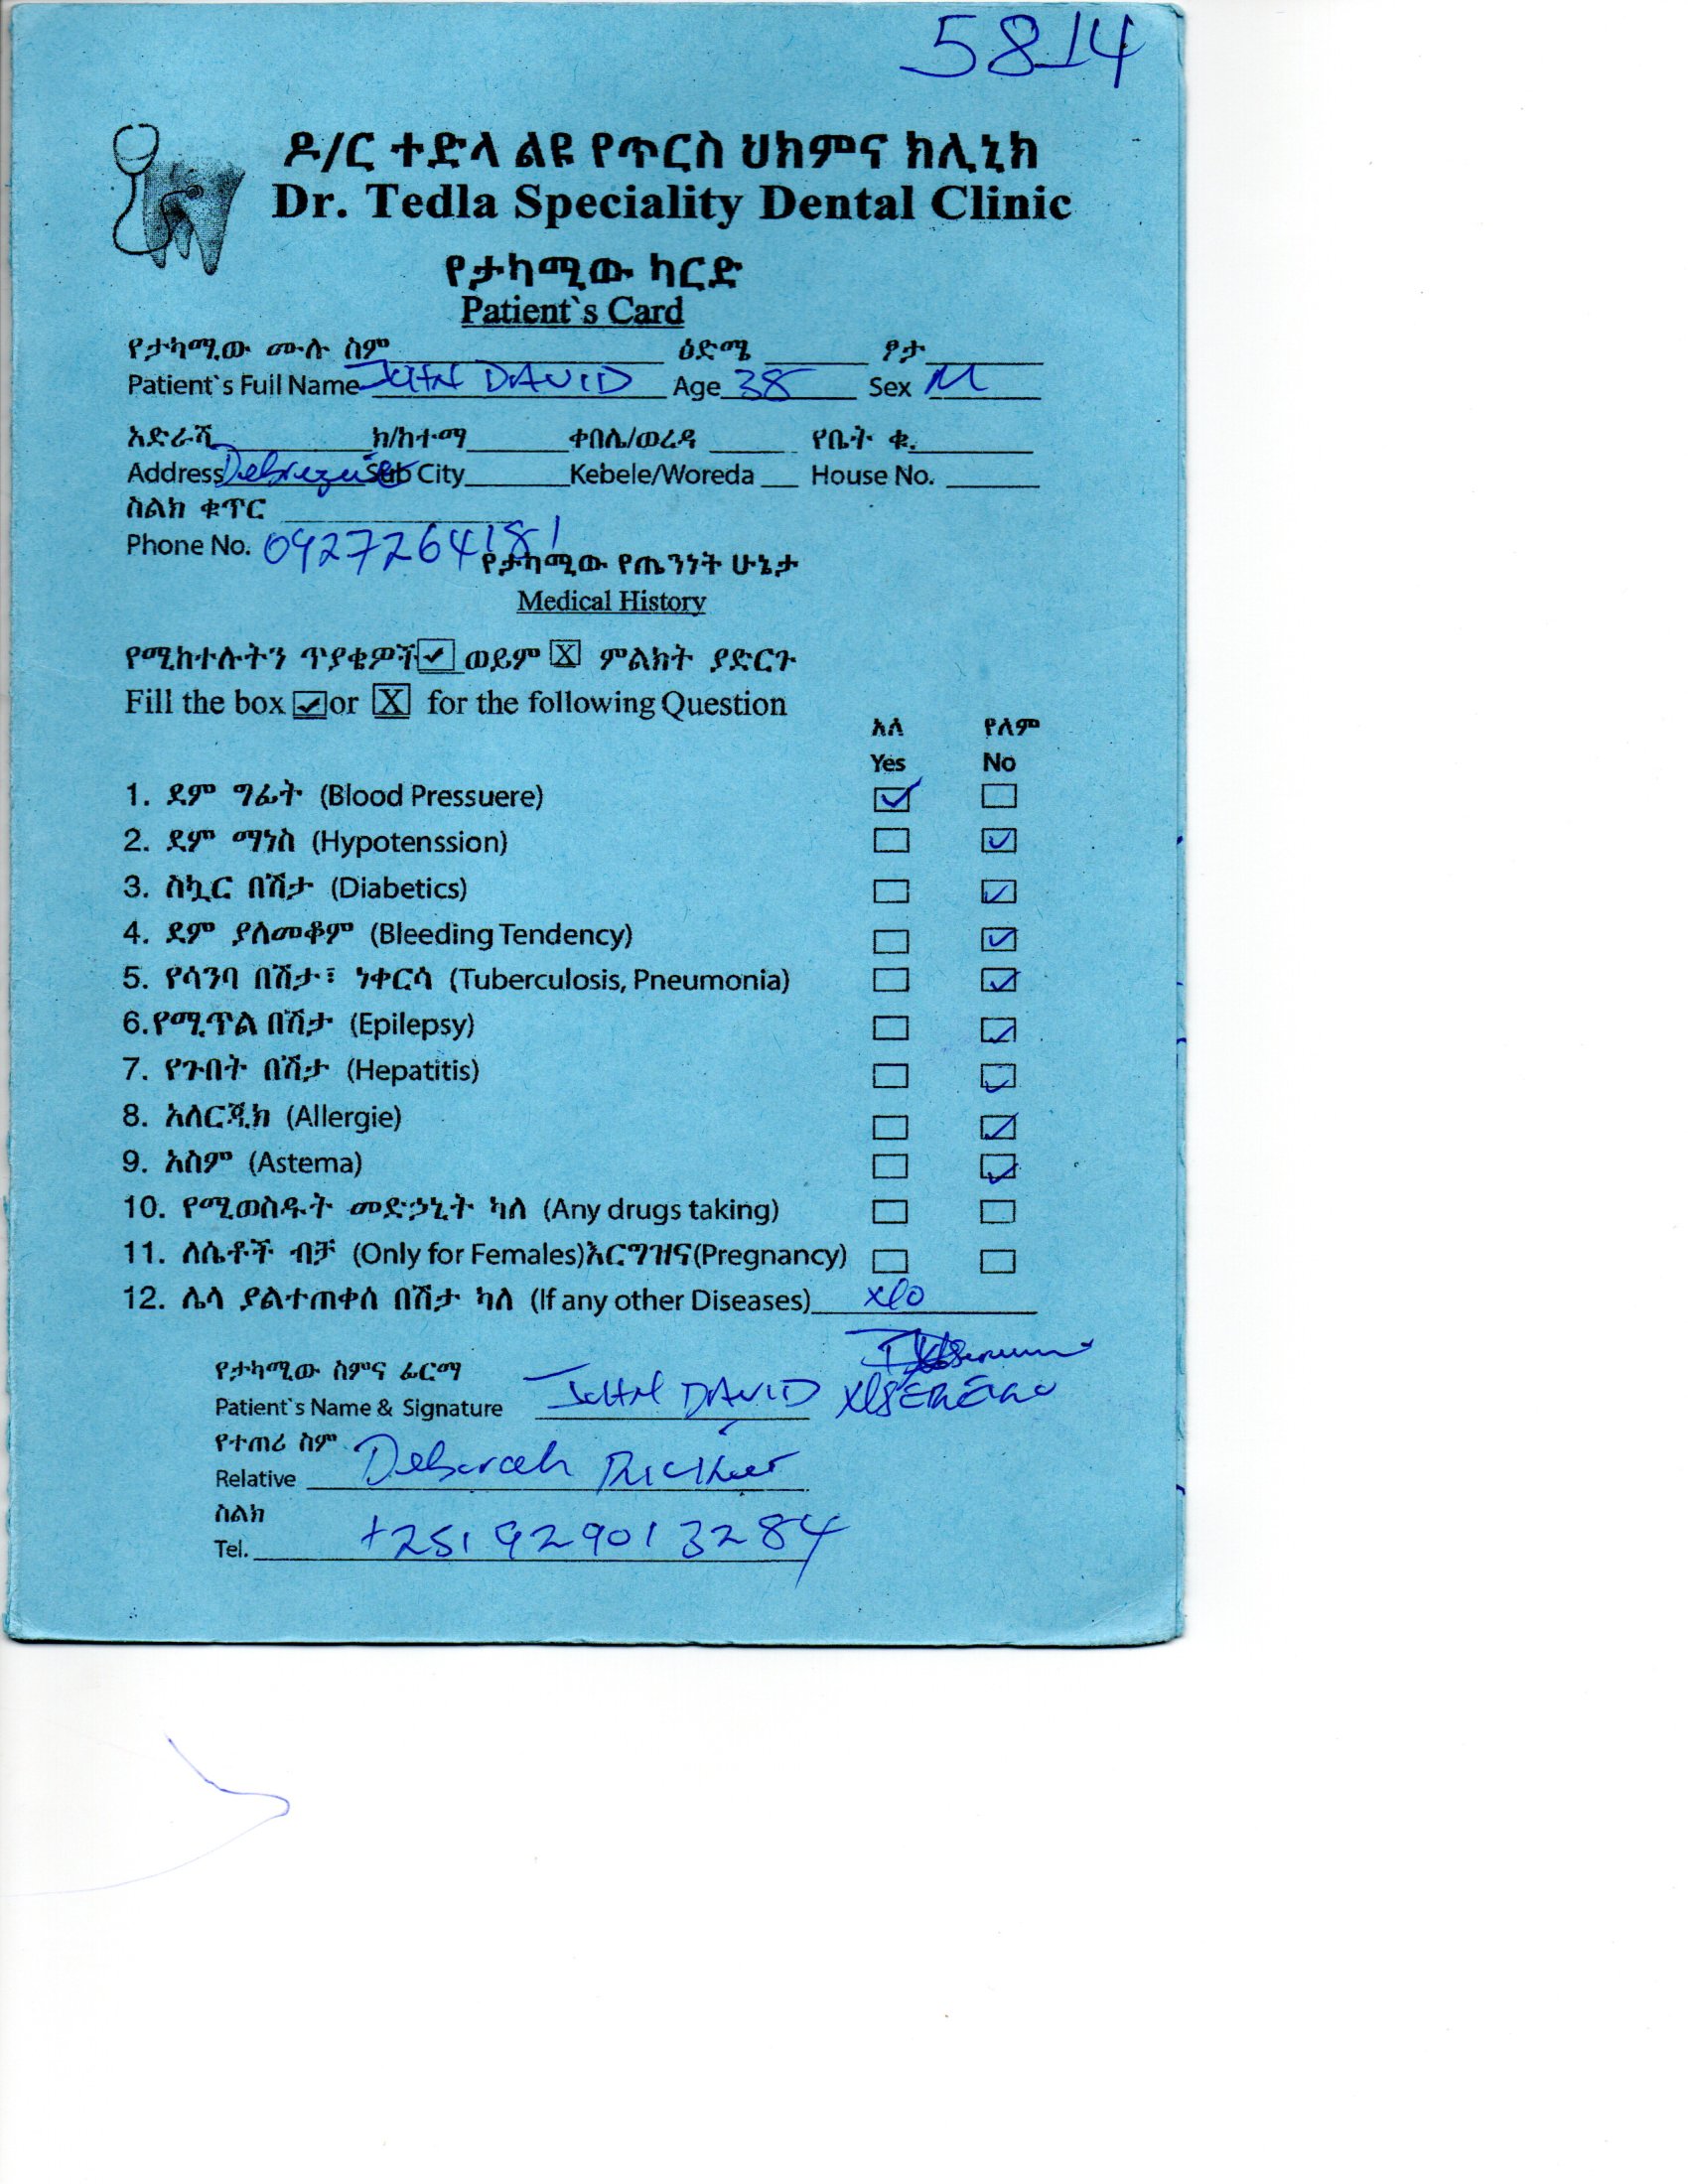 5814
ዶ/ር ተድላ ልዩ የጥርስ ህክምና ክሊኒክ
Dr. Tedla Speciality Dental Clinic
የታካሚው ካርድ
Patient`s Card
የታካሚው ሙሉ ስም ዕድሜ ፆታ
Patient`s Full Name JOHN DAVID Age 38 Sex M
አድራሻ ክ/ከተማ ቀበሌ/ወረዳ የቤት ቁ.
Address Sub City Kebele/Woreda House No.
ስልክ ቁጥር
Phone No. 0927264181
የታካሚው የጤንነት ሁኔታ
Medical History
የሚከተሉትን ጥያቄዎች ✓ ወይም X ምልክት ያድርጉ
Fill the box ✓ or X for the following Question
አለ የለም
Yes No
1. ደም ግፊት (Blood Pressuere) ✓
2. ደም ማነስ (Hypotenssion) ✓
3. ስኳር በሽታ (Diabetics) ✓
4. ደም ያለመቆም (Bleeding Tendency) ✓
5. የሳንባ በሽታ፣ ነቀርሳ (Tuberculosis, Pneumonia) ✓
6. የሚጥል በሽታ (Epilepsy) ✓
7. የጉበት በሽታ (Hepatitis) ✓
8. አለርጂክ (Allergie) ✓
9. አስም (Astema) ✓
10. የሚወስዱት መድኃኒት ካለ (Any drugs taking)
11. ለሴቶች ብቻ (Only for Females) እርግዝና (Pregnancy)
12. ሌላ ያልተጠቀሰ በሽታ ካለ (If any other Diseases)
የታካሚው ስምና ፊርማ
Patient`s Name & Signature JOHN DAVID
የተጠሪ ስም
Relative Deborah
ስልክ
Tel. +251 929013284